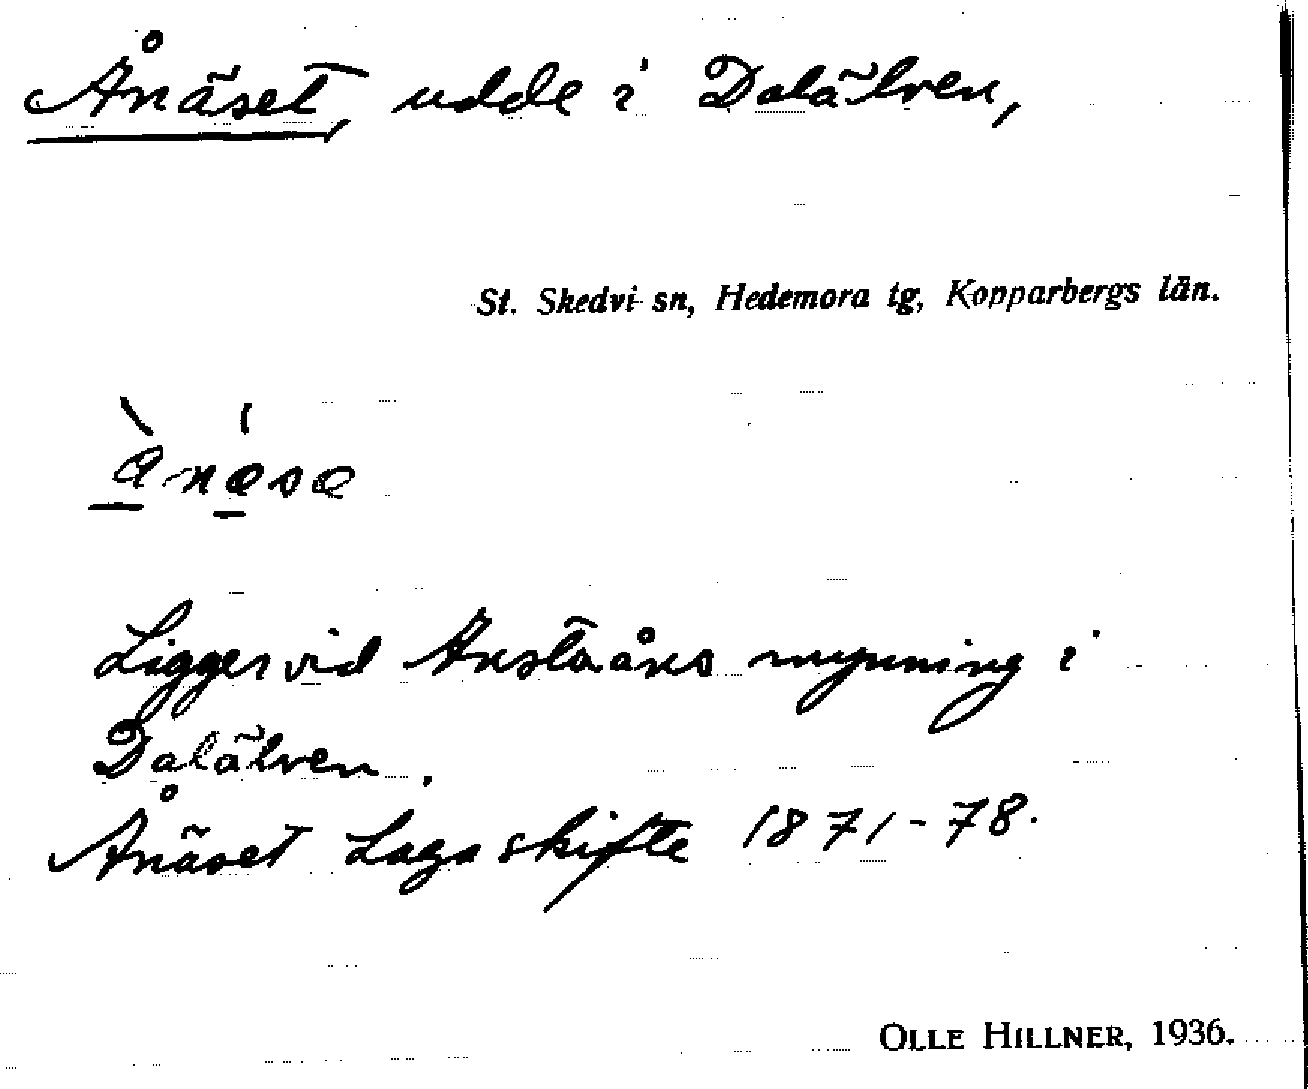 Ånäset, udde i Dalälven,
St. Skedvi sn, Hedemora tg, Kopparbergs län.
ànæsæ
Ligger vid Anstaåns mynning i
Dalälven.
Ånäset Laga skifte 1871-78.
OLLE HILLNER, 1936.